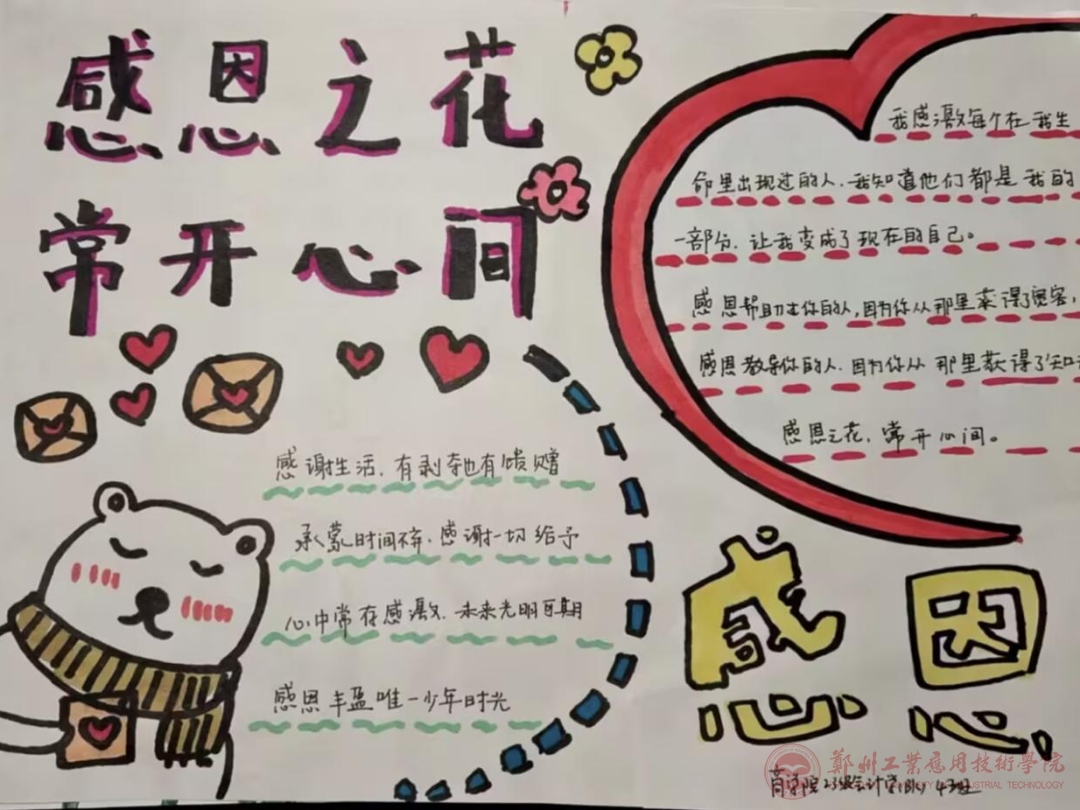 感恩之花
常开心间
我感激每个在我生
命里出现过的人.我知道他们都是我的
一部分.让我变成了现在的自己。
感恩帮助过你的人,因为你从那里获得了宽容,
感恩教导你的人.因为你从那里获得了知
感恩之花,常开心间。
感谢生活,有剥夺也有馈赠
承蒙时间不弃.感谢一切给予
心中常存感激.未来光明可期
感恩丰盈唯一少年时光
感恩
商学院 23级会计学
鄭州工業應用技術學院
INDUSTRIAL TECHNOLOGY